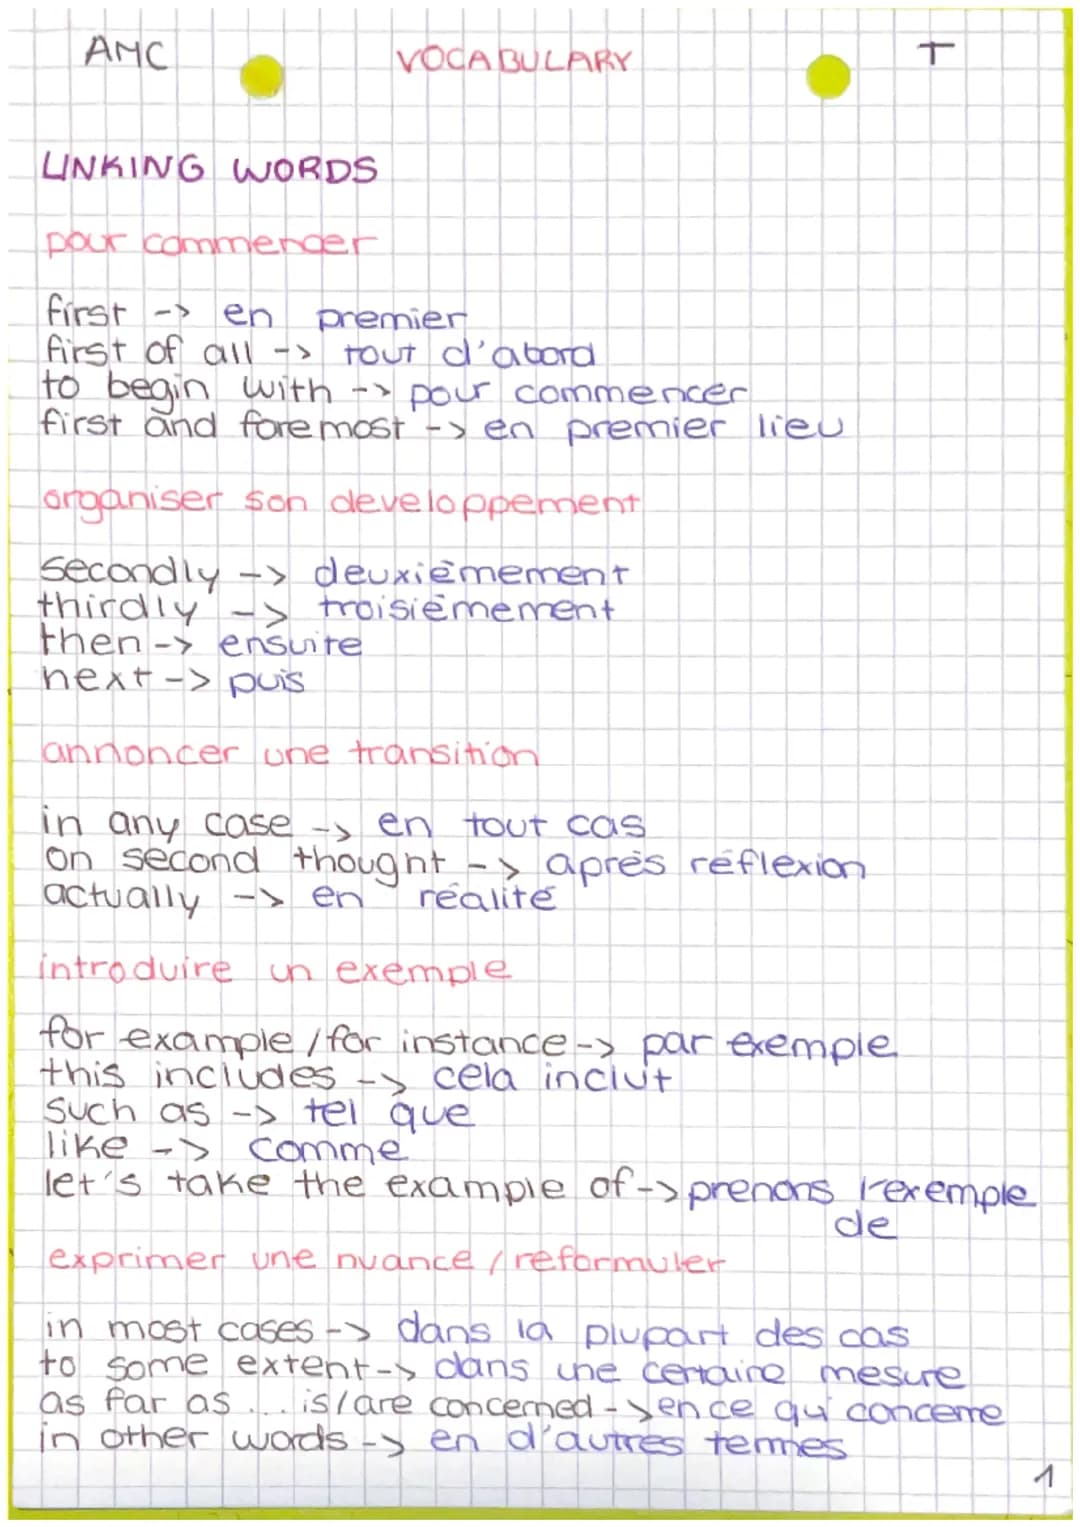 AMC VOCABULARY T
LINKING WORDS
pour commencer
first -> en premier
first of all -> tout d'abord
to begin with -> pour commencer
first and foremost -> en premier lieu
organiser son developpement
secondly -> deuxièmement
thirdly -> troisièmement
then -> ensuite
next -> puis
annoncer une transition
in any case -> en tout cas
on second thought -> après réflexion
actually -> en réalité
introduire un exemple
for example / for instance -> par exemple
this includes -> cela inclut
such as -> tel que
like -> comme
let's take the example of -> prenons l'exemple
de
exprimer une nuance / reformuler
in most cases -> dans la plupart des cas
to some extent -> dans une certaine mesure
as far as ... is/are concerned -> en ce qui concerne
in other words -> en d'autres termes
1